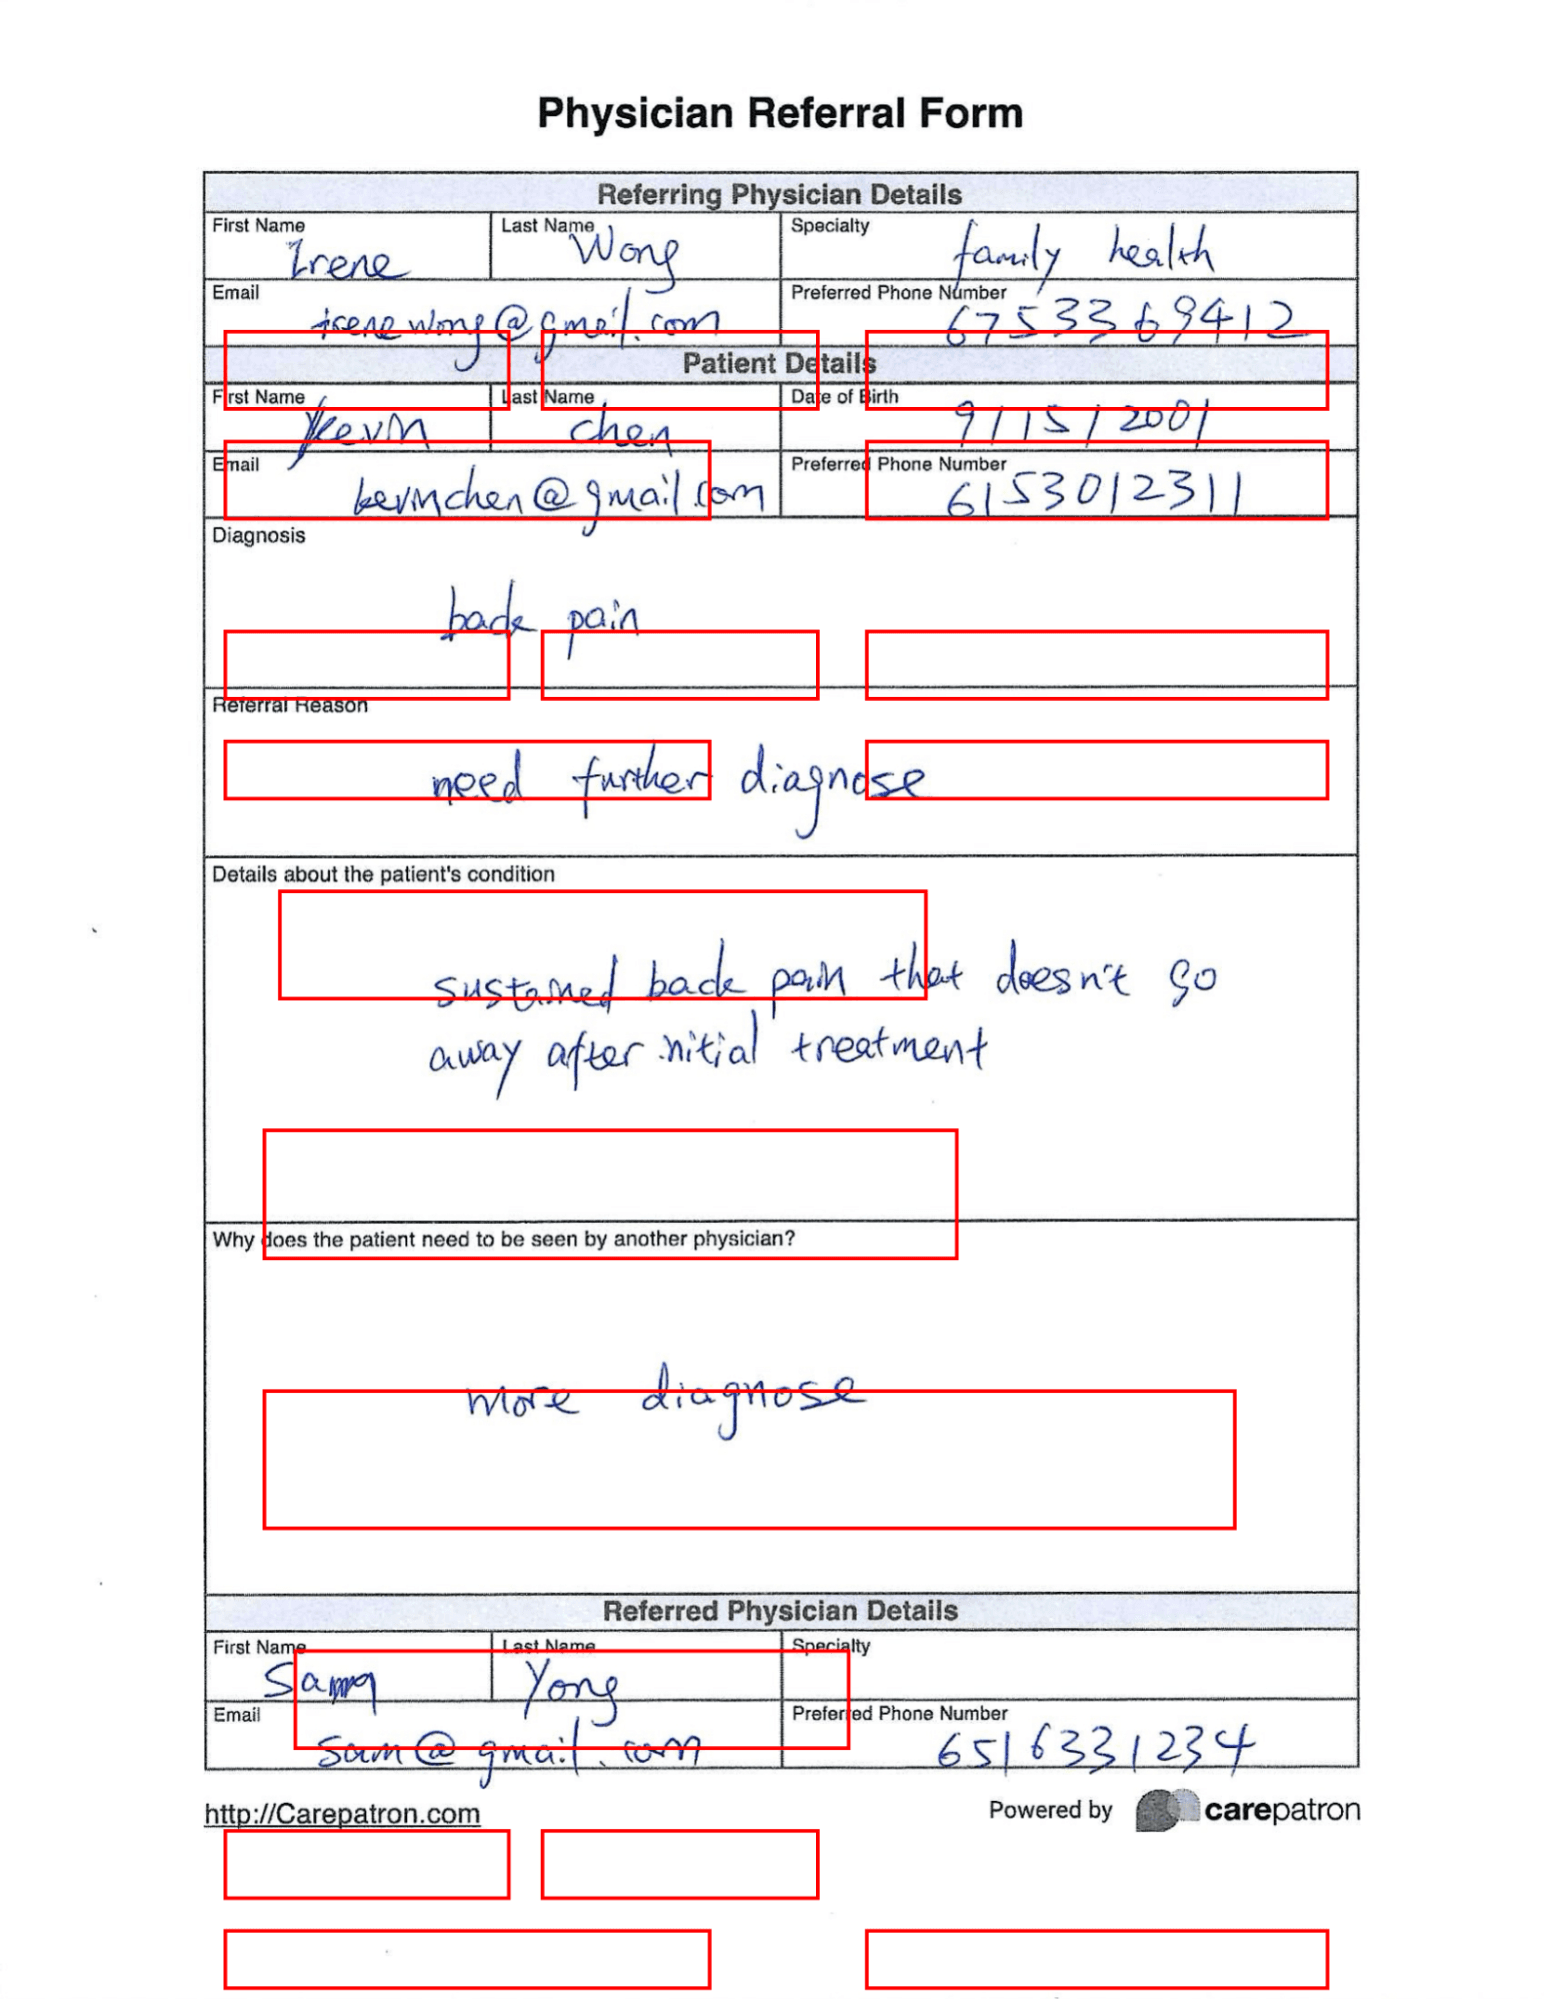 Physician Referral Form
Referring Physician Details
First Name Irene
Last Name Wong
Specialty family health
Email irenewong@gmail.com
Preferred Phone Number 6753369412
Patient Details
First Name Kevin
Last Name chen
Date of Birth 9/15/2001
Email kevinchen@gmail.com
Preferred Phone Number 6153012311
Diagnosis
back pain
Referral Reason
need further diagnose
Details about the patient's condition
sustained back pain that doesn't go
away after initial treatment
Why does the patient need to be seen by another physician?
more diagnose
Referred Physician Details
First Name
Last Name Yong
Specialty
Email sam@gmail.com
Preferred Phone Number 6516331234
http://Carepatron.com
Powered by carepatron